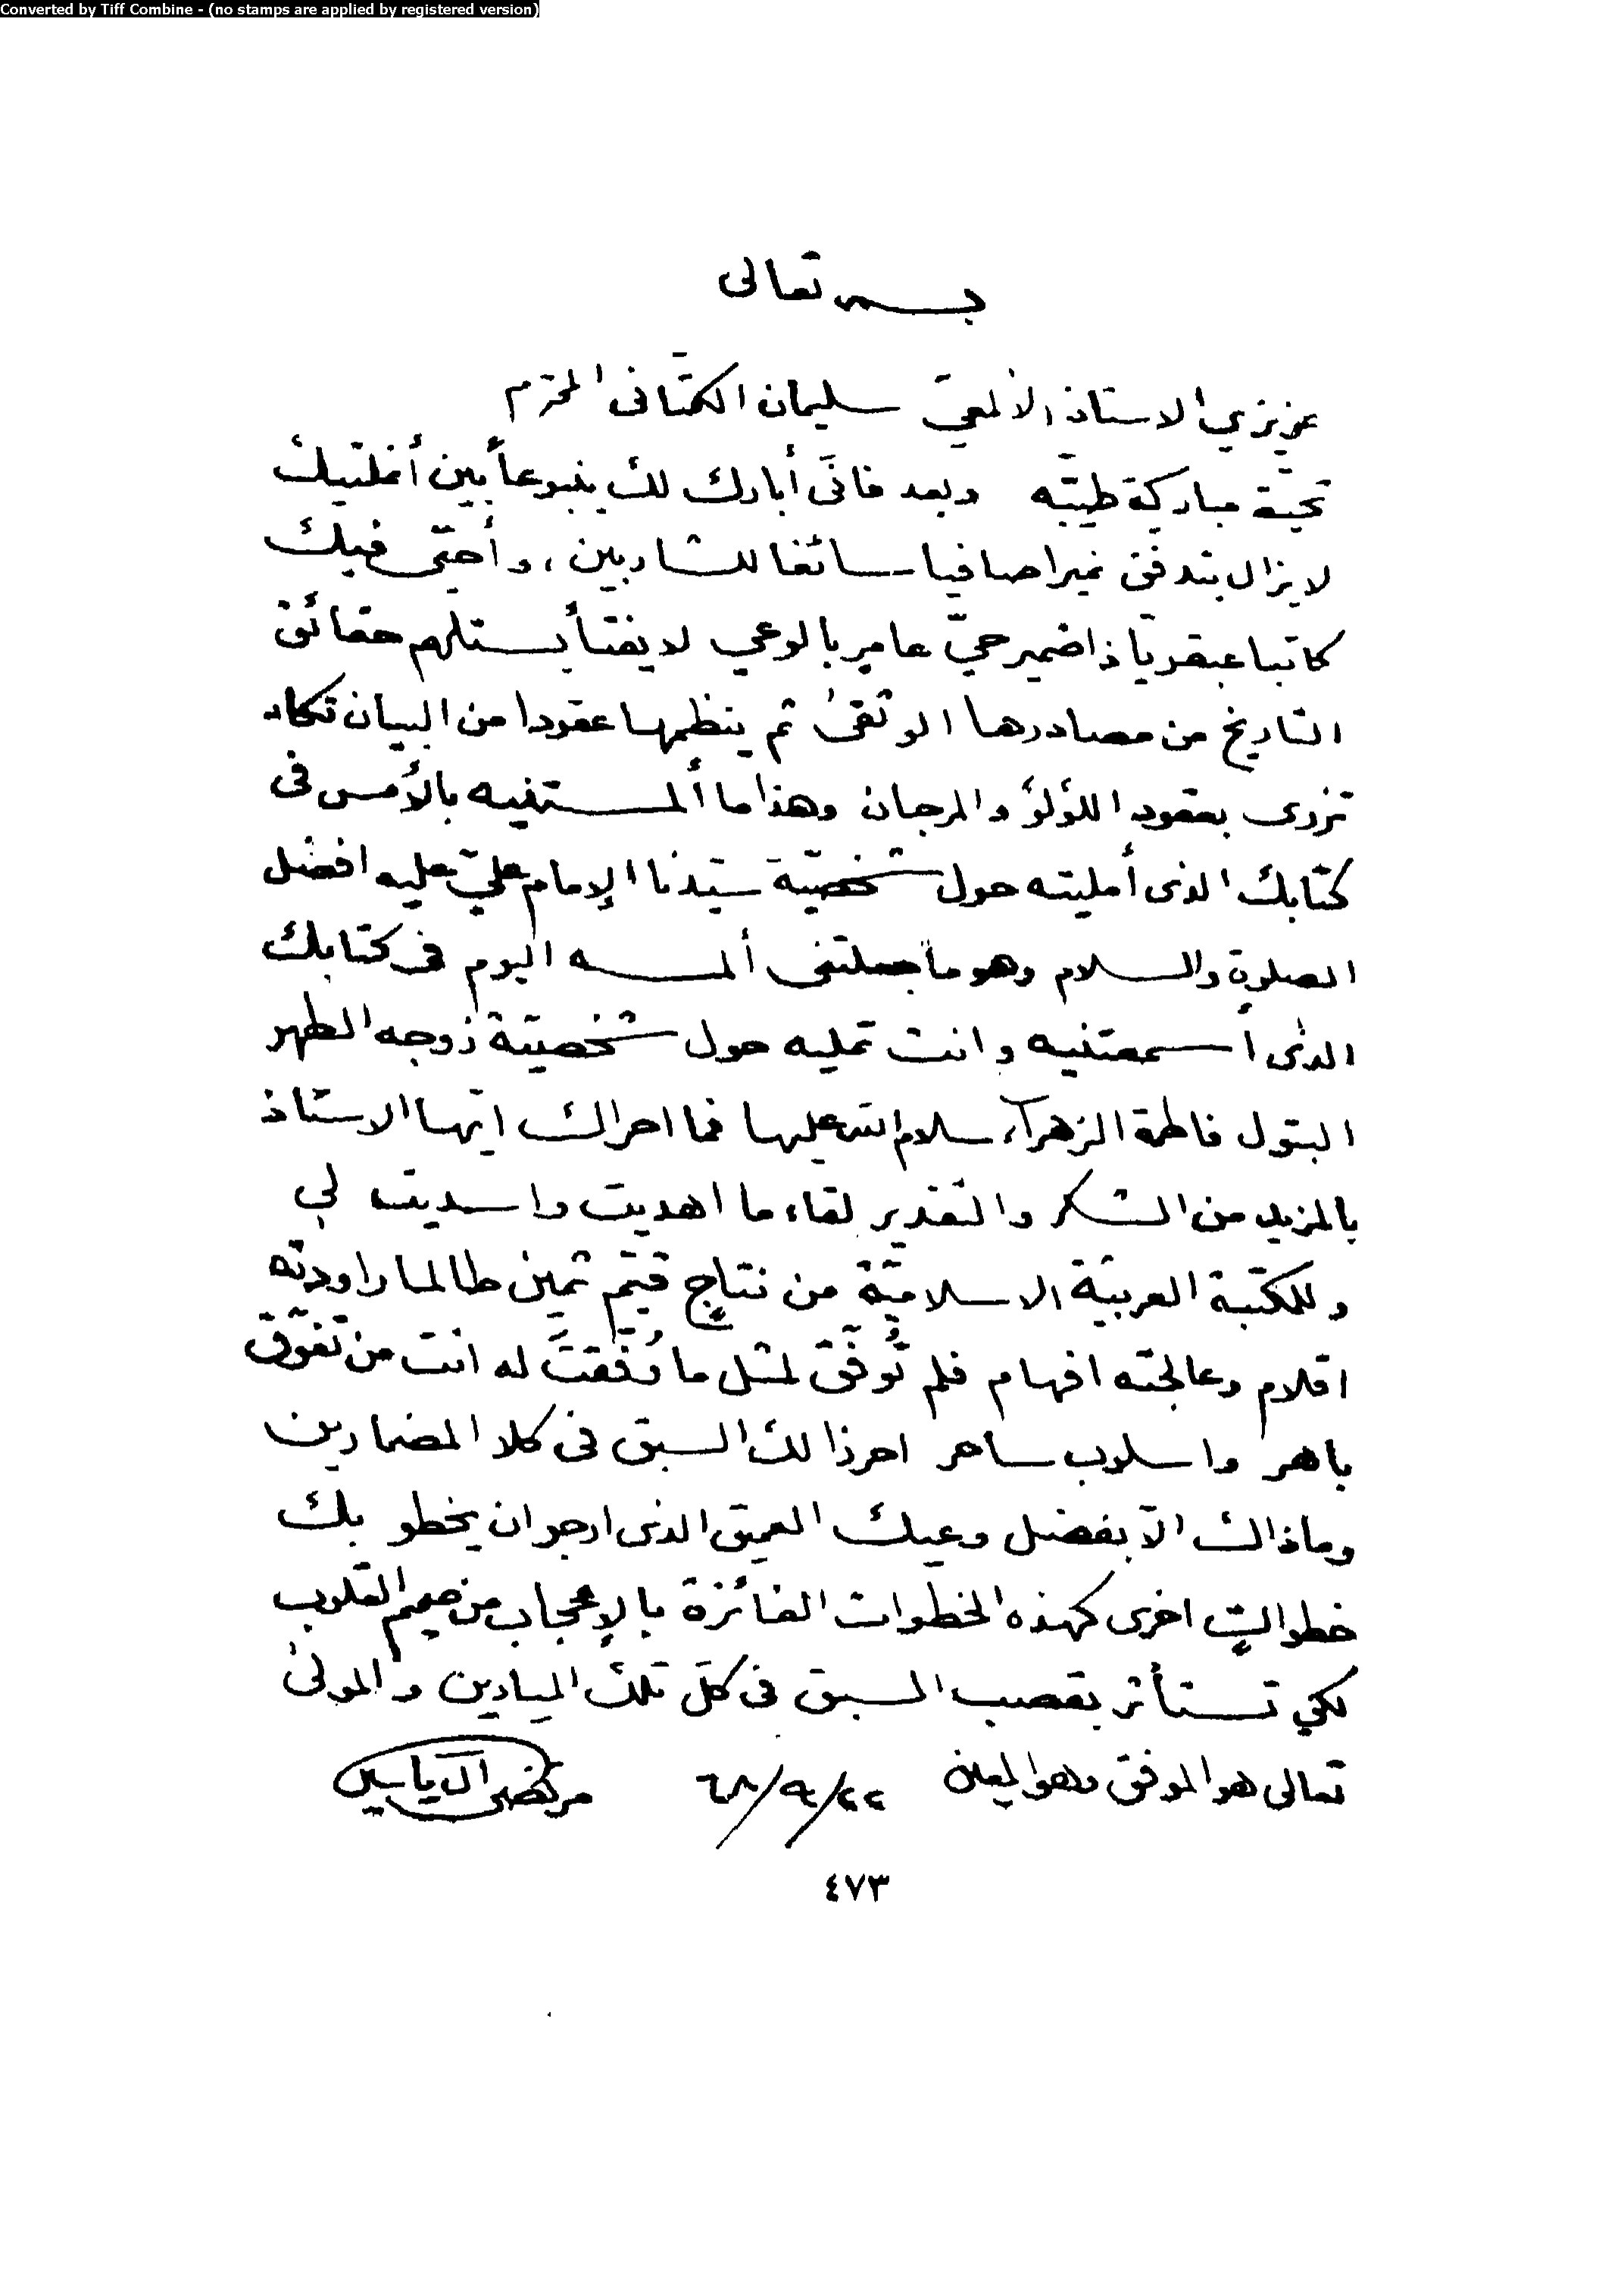 Converted by Tiff Combine - (no stamps are applied by registered version)
بسمه تعالى
عزيزي الاستاذ الألمعيّ سليمان الكتّانى المحترم
تحيّة مباركة طيبّه وبعد فانّى أبارك لك ينبوعاً بين أنملتيك
لايزال يتدفق نميرا صافيا سائغا للشاربين، وأحيّى فيك
كاتبا عبقريّا ذا ضمير حيّ عامر بالوعي لا يفتأ يستلهم حقائق
التاريخ من مصادرها الوثقى ثم ينظمها عقودا من البيان تكاد
تزرى بعقود اللؤلؤ والمرجان وهذا ما ألمستنيه بالأمس فى
كتابك الذى أمليته حول شخصيّة سيّدنا الإمام عليّ عليه افضل
الصلوة والسلام وهو ما جعلتنى ألمسه اليوم فى كتابك
الذى أسمعتنيه وانت تمليه حول شخصيّة زوجه الطهر
البتول فاطمة الزهرآء سلام الله عليها فما احراك ايّها الاستاذ
بالمزيد من الشكر والتقدير لقاء ما اهديت واسديت لي
وللمكتبة العربيّة الاسلاميّة من نتاجٍ قيّم ثمين طالما راودته
اقلام وعالجته افهام فلم تُوفّق لمثل ما وُفّقتَ له انت من تفوّق
باهر واسلوب ساحر احرزا لك السبق فى كلا المضمارين
وماذاك الاّ بفضل وعيك العميق الذى ارجو ان يخطو بك
خطواتٍ اخرى كهذه الخطوات الفائزة بالإعجاب من صميم القلوب
لكي تستأثر بقصب السبق فى كلّ تلك الميادين والمولى
تعالى هو الموفق وهو المعين ٢٢/٩/٦٨ مرتضى آل ياسين
٤٧٣